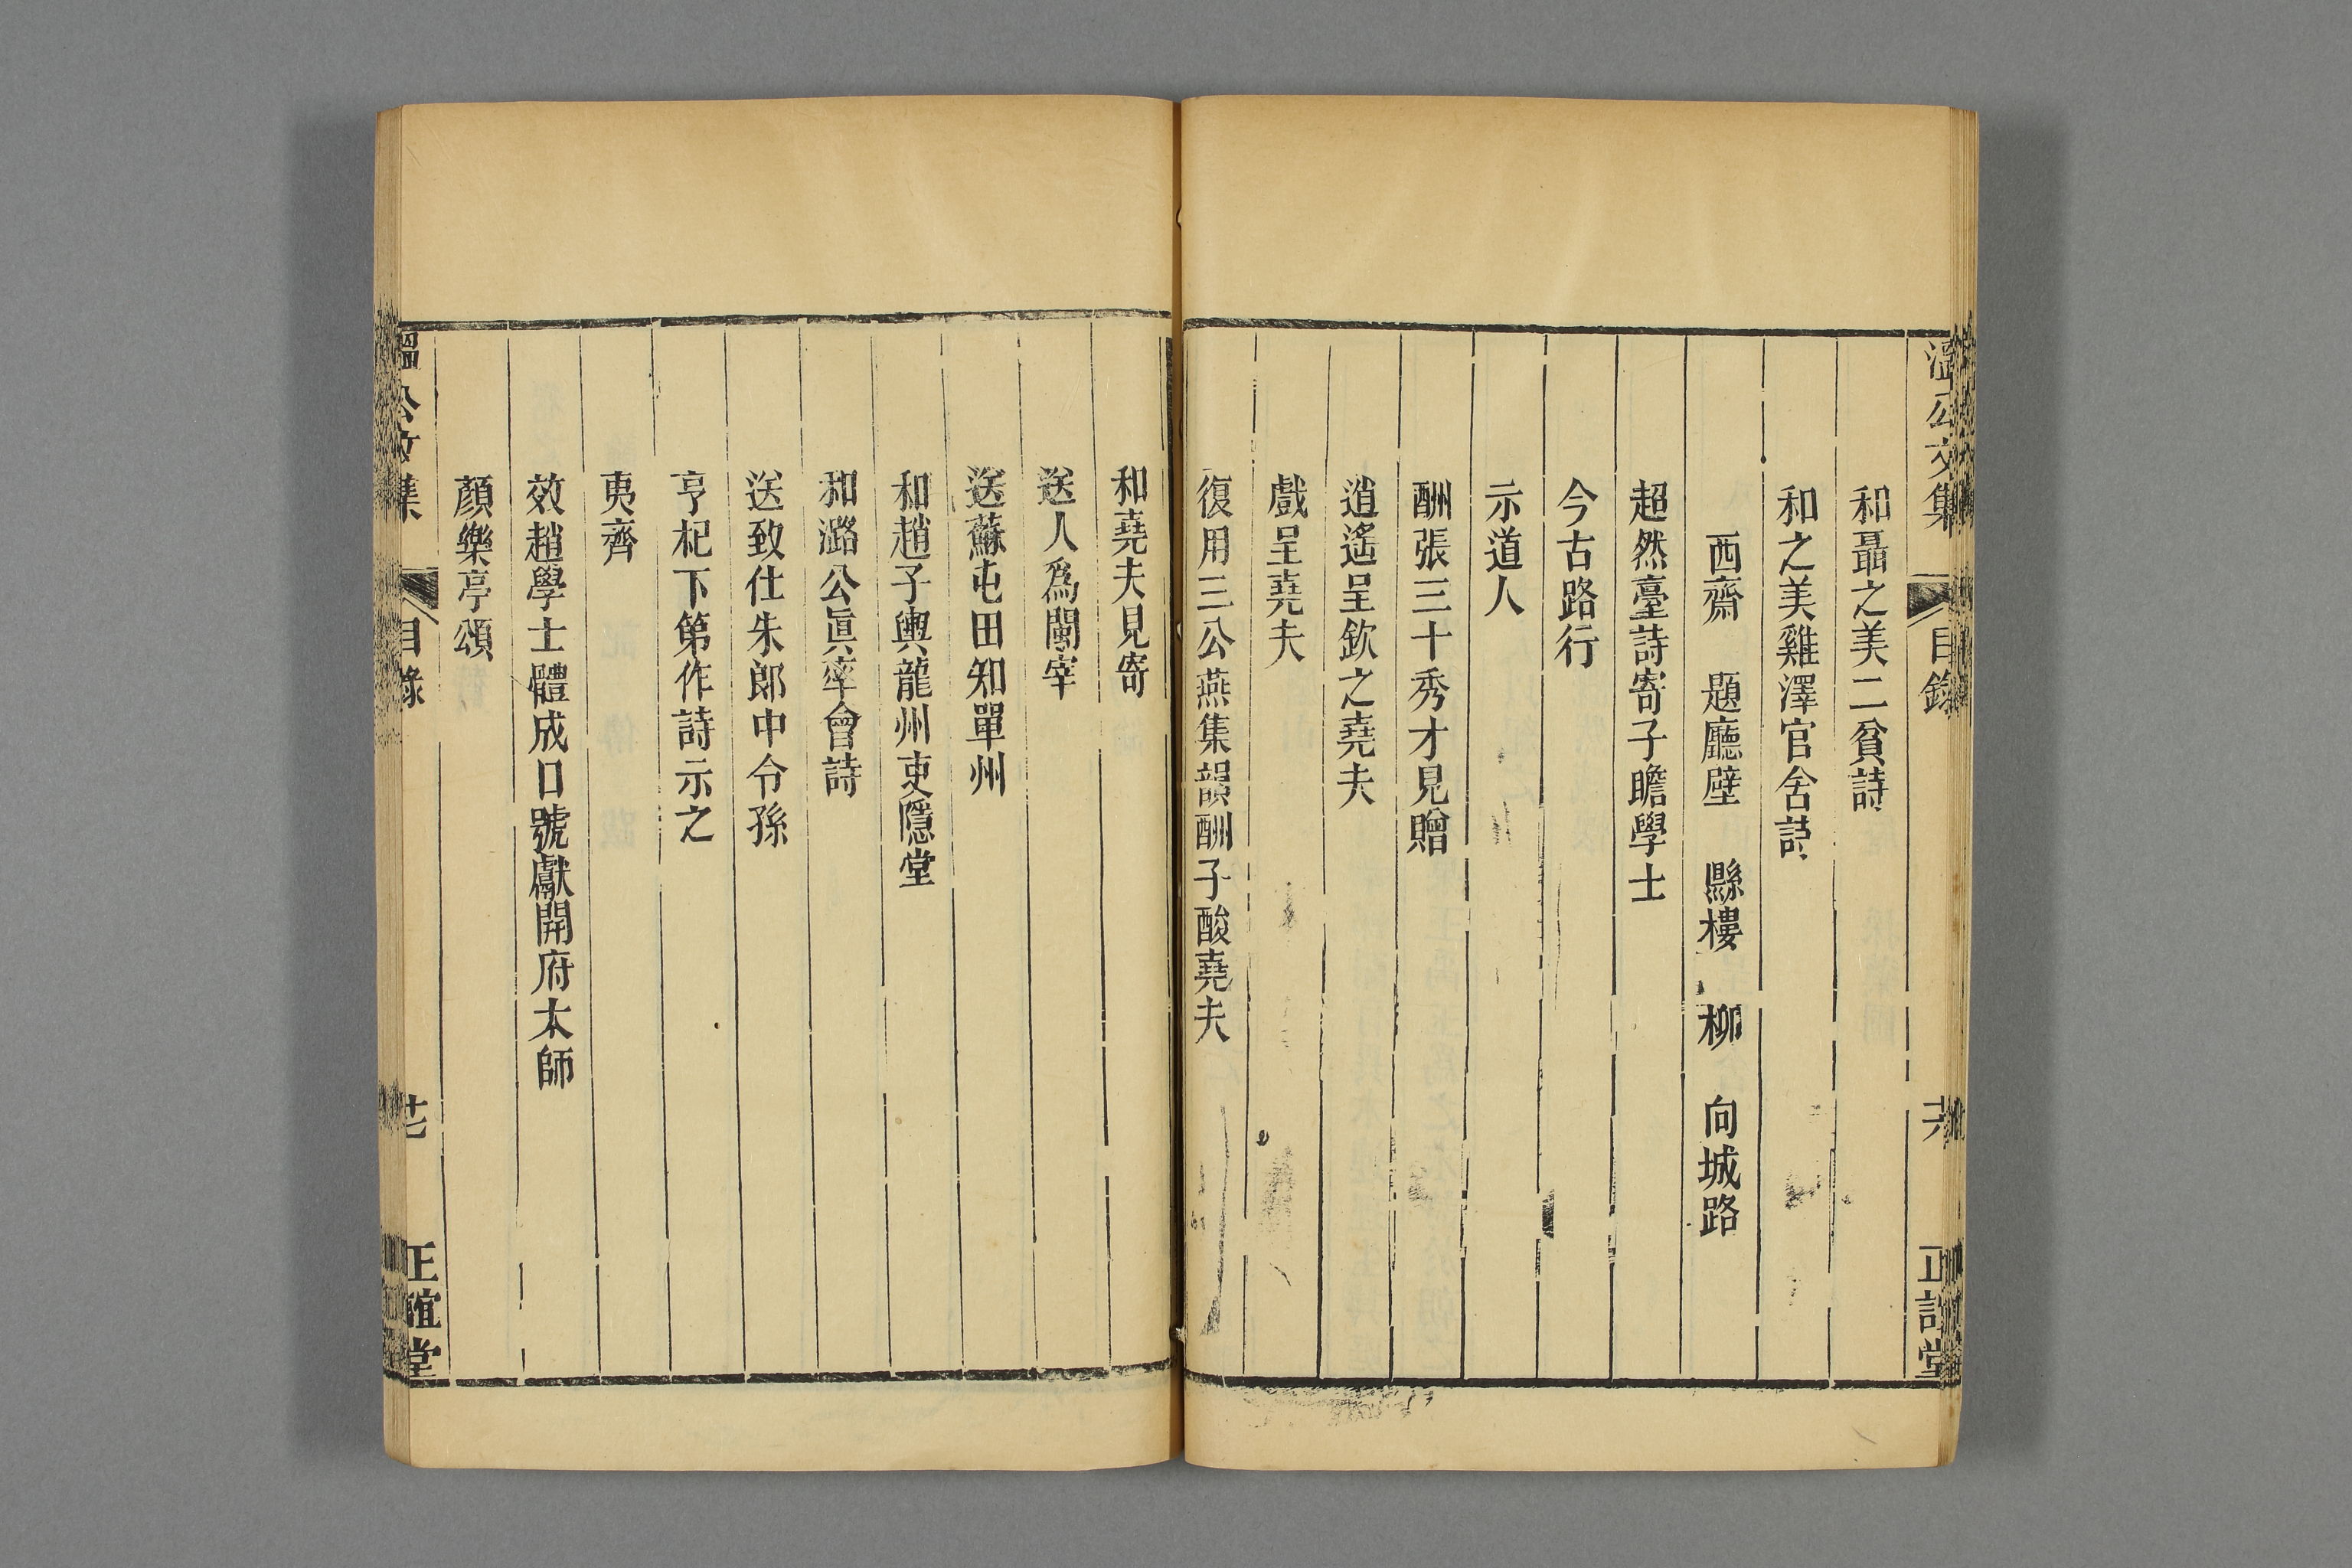 溫公文集 目錄 芺 正誼堂
和聶之美二貧詩
和之美雞澤官舍詩
西齋 題廳壁 縣樓 柳 向城路
超然臺詩寄子瞻學士
今古路行
示道人
酬張三十秀才見贈
逍遙呈欽之堯夫
戲呈堯夫
復用三公燕集韻酬子酸堯夫
和堯夫見寄
送人為閩宰
送蘇屯田知單州
和趙子輿龍州吏隱堂
和潞公眞率會詩
送致仕朱郎中令孫
亨杞下第作詩示之
夷齊
效趙學士體成口號獻開府太師
顏樂亭頌
溫公文集 目錄 芒 正誼堂